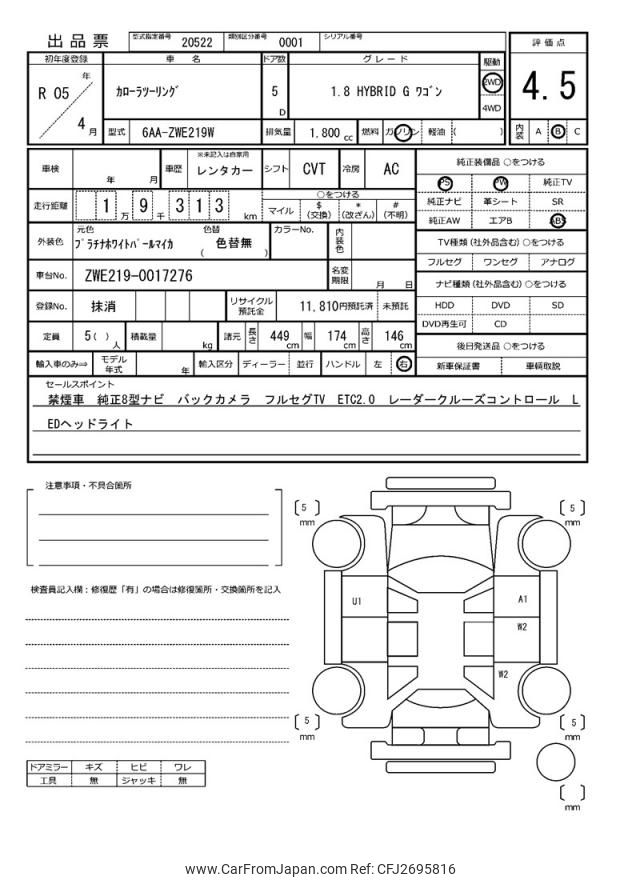 出品票 型式指定番号 20522 類別区分番号 0001 シリアル番号
初年度登録 車 名 ドア数 グレード 駆動 評価点
R 05 年 4 月 カローラツーリング 5 D 1.8 HYBRID G ワゴン 2WD 4WD 4.5
型式 6AA-ZWE219W 排気量 1,800 cc 燃料 ガソリン 軽油 ( ) 内装 A B C
車検 年 月 車歴 ※未記入は自家用 レンタカー シフト CVT 冷房 AC 純正装備品 ○をつける
PS PW 純正TV
走行距離 1 万 9 千 3 1 3 km ○をつける 純正ナビ 革シート SR
マイル $ (交換) * (改ざん) # (不明) 純正AW エアB ABS
外装色 元色 プラチナホワイトパールマイカ 色替 ( 色替無 ) カラーNo. 内装色 TV種類 (社外品含む) ○をつける
フルセグ ワンセグ アナログ
車台No. ZWE219-0017276 名変期限 月 日 ナビ種類 (社外品含む) ○をつける
登録No. 抹消 リサイクル預託金 11,810円預託済 未預託 HDD DVD SD
DVD再生可 CD
定員 5( ) 人 積載量 kg 諸元 長さ 449 cm 幅 174 cm 高さ 146 cm 後日発送品 ○をつける
輸入車のみ⇒ モデル年式 年 輸入区分 ディーラー 並行 ハンドル 左 右 新車保証書 車輌取説
セールスポイント
禁煙車 純正8型ナビ バックカメラ フルセグTV ETC2.0 レーダークルーズコントロール L
EDヘッドライト
注意事項・不具合箇所
5 mm
5 mm
検査員記入欄：修復歴「有」の場合は修復箇所・交換箇所を記入
U1
A1
W2
W2
5 mm
5 mm
ドアミラー キズ ヒビ ワレ
工具 無 ジャッキ 無
mm
www.CarFromJapan.com Ref: CFJ2695816